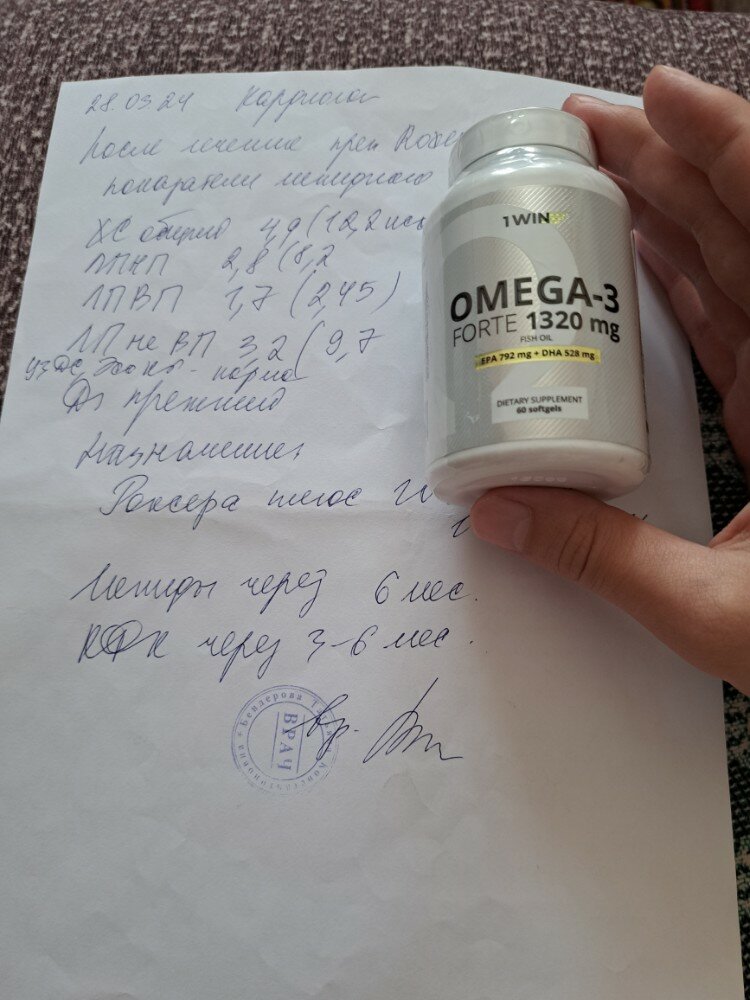 28.03.24 Кардиолог
После лечения преп Roxe
показатели липидного
ХС общий 4,9 (12,2 исх
ЛПНП 2,8 (8,2
ЛПВП 1,7 (2,45)
ЛП не ВП 3,2 (9,7
УЗДС, Эхокс - норма
Ds прежний
Назначения
Роксера плюс
Липиды через 6 мес.
КФК через 3-6 мес.
Бендерова
ВРАЧ
1WIN
OMEGA-3
FORTE 1320 mg
FISH OIL
EPA 792 mg + DHA 528 mg
DIETARY SUPPLEMENT
60 softgels